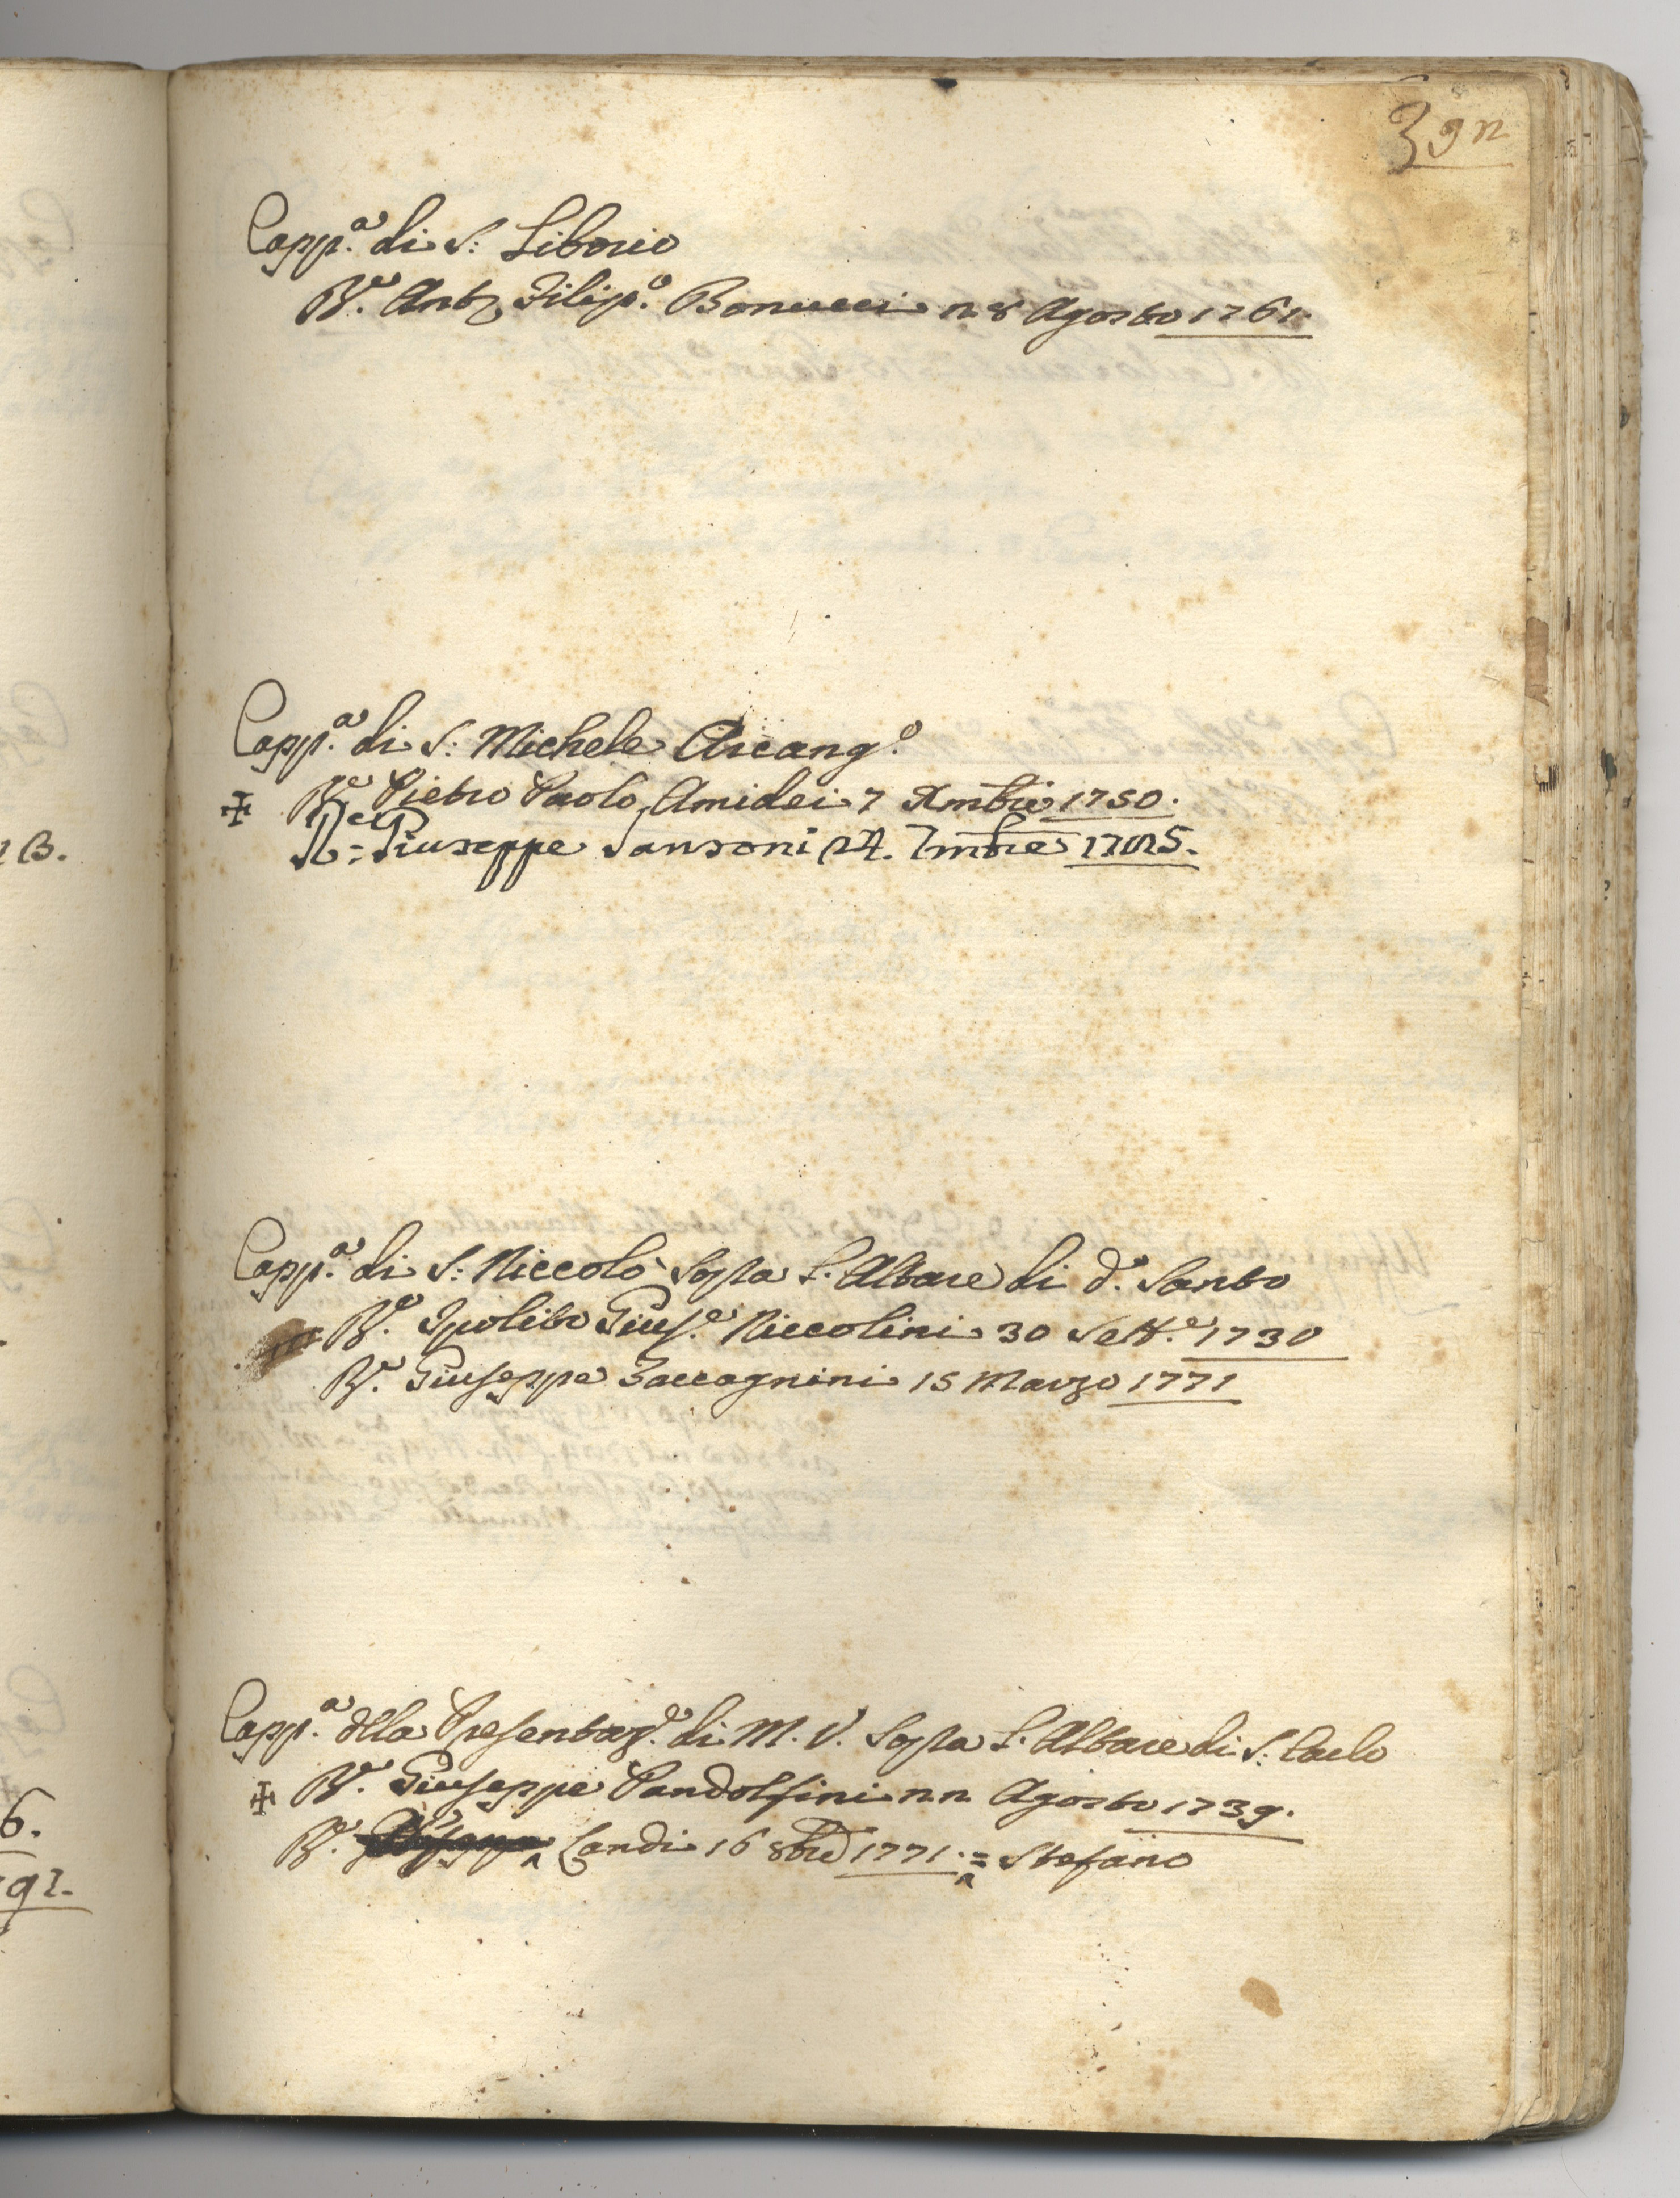 392
Capp.a di S: Liborio
R.e Ant.o Filip.o Bonucci 28 Agosto 1761.
Capp.a di S: Michele Arcang.o
✠ R.e Pietro Paolo Amidei 7 Xmbre 1750.
R.e: Giuseppe Sansoni 24. 7mbre 1785.
Capp.a di S: Niccolò Sop.a l'Altare di d.o Santo
R.e Ipolito Gius.e Niccolini 30 Sett.e 1730
R.e Giuseppe Zaccagnini 15 Marzo 1771
Capp.a dlla Presentaz.e di M. V. Sop.a l'Altare di S: Carlo
✠ R.e Giuseppe Pandolfini 22 Agosto 1739.
R.e Landi 16 8bre 1771. = Stefano
2 B.
6.
91.